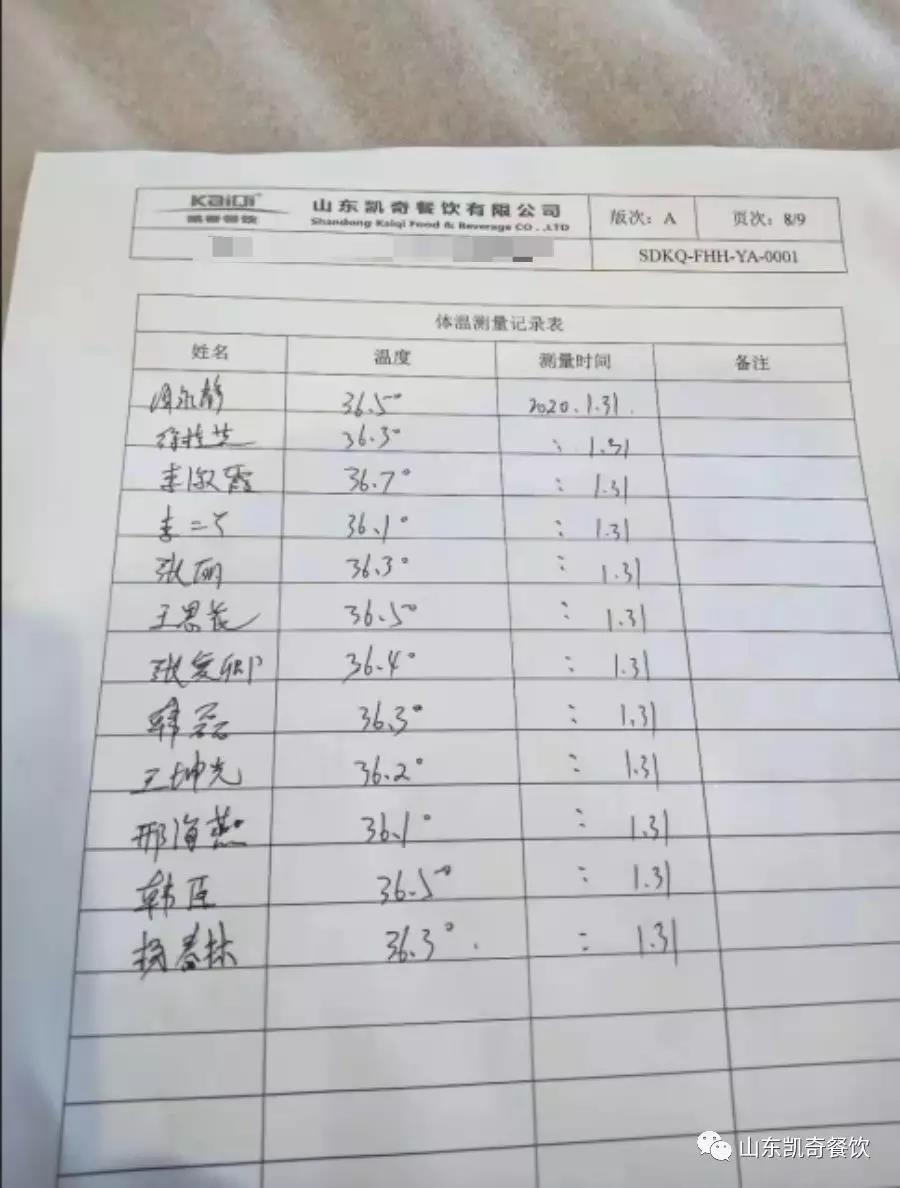 KaiQi
凯奇餐饮
山东凯奇餐饮有限公司
Shandong Kaiqi Food & Beverage CO.,LTD
版次：A 页次：8/9
SDKQ-FHH-YA-0001
体温测量记录表
姓名 温度 测量时间 备注
36.5° 2020.1.31.
徐桂芝 36.3° : 1.31
李淑霞 36.7° : 1.31
李二 36.1° : 1.31
张丽 36.3° : 1.31
王思 36.5° : 1.31
张爱 36.4° : 1.31
韩磊 36.3° : 1.31
王坤光 36.2° : 1.31
邢海燕 36.1° : 1.31
韩臣 36.5° : 1.31
杨春林 36.3° : 1.31
山东凯奇餐饮